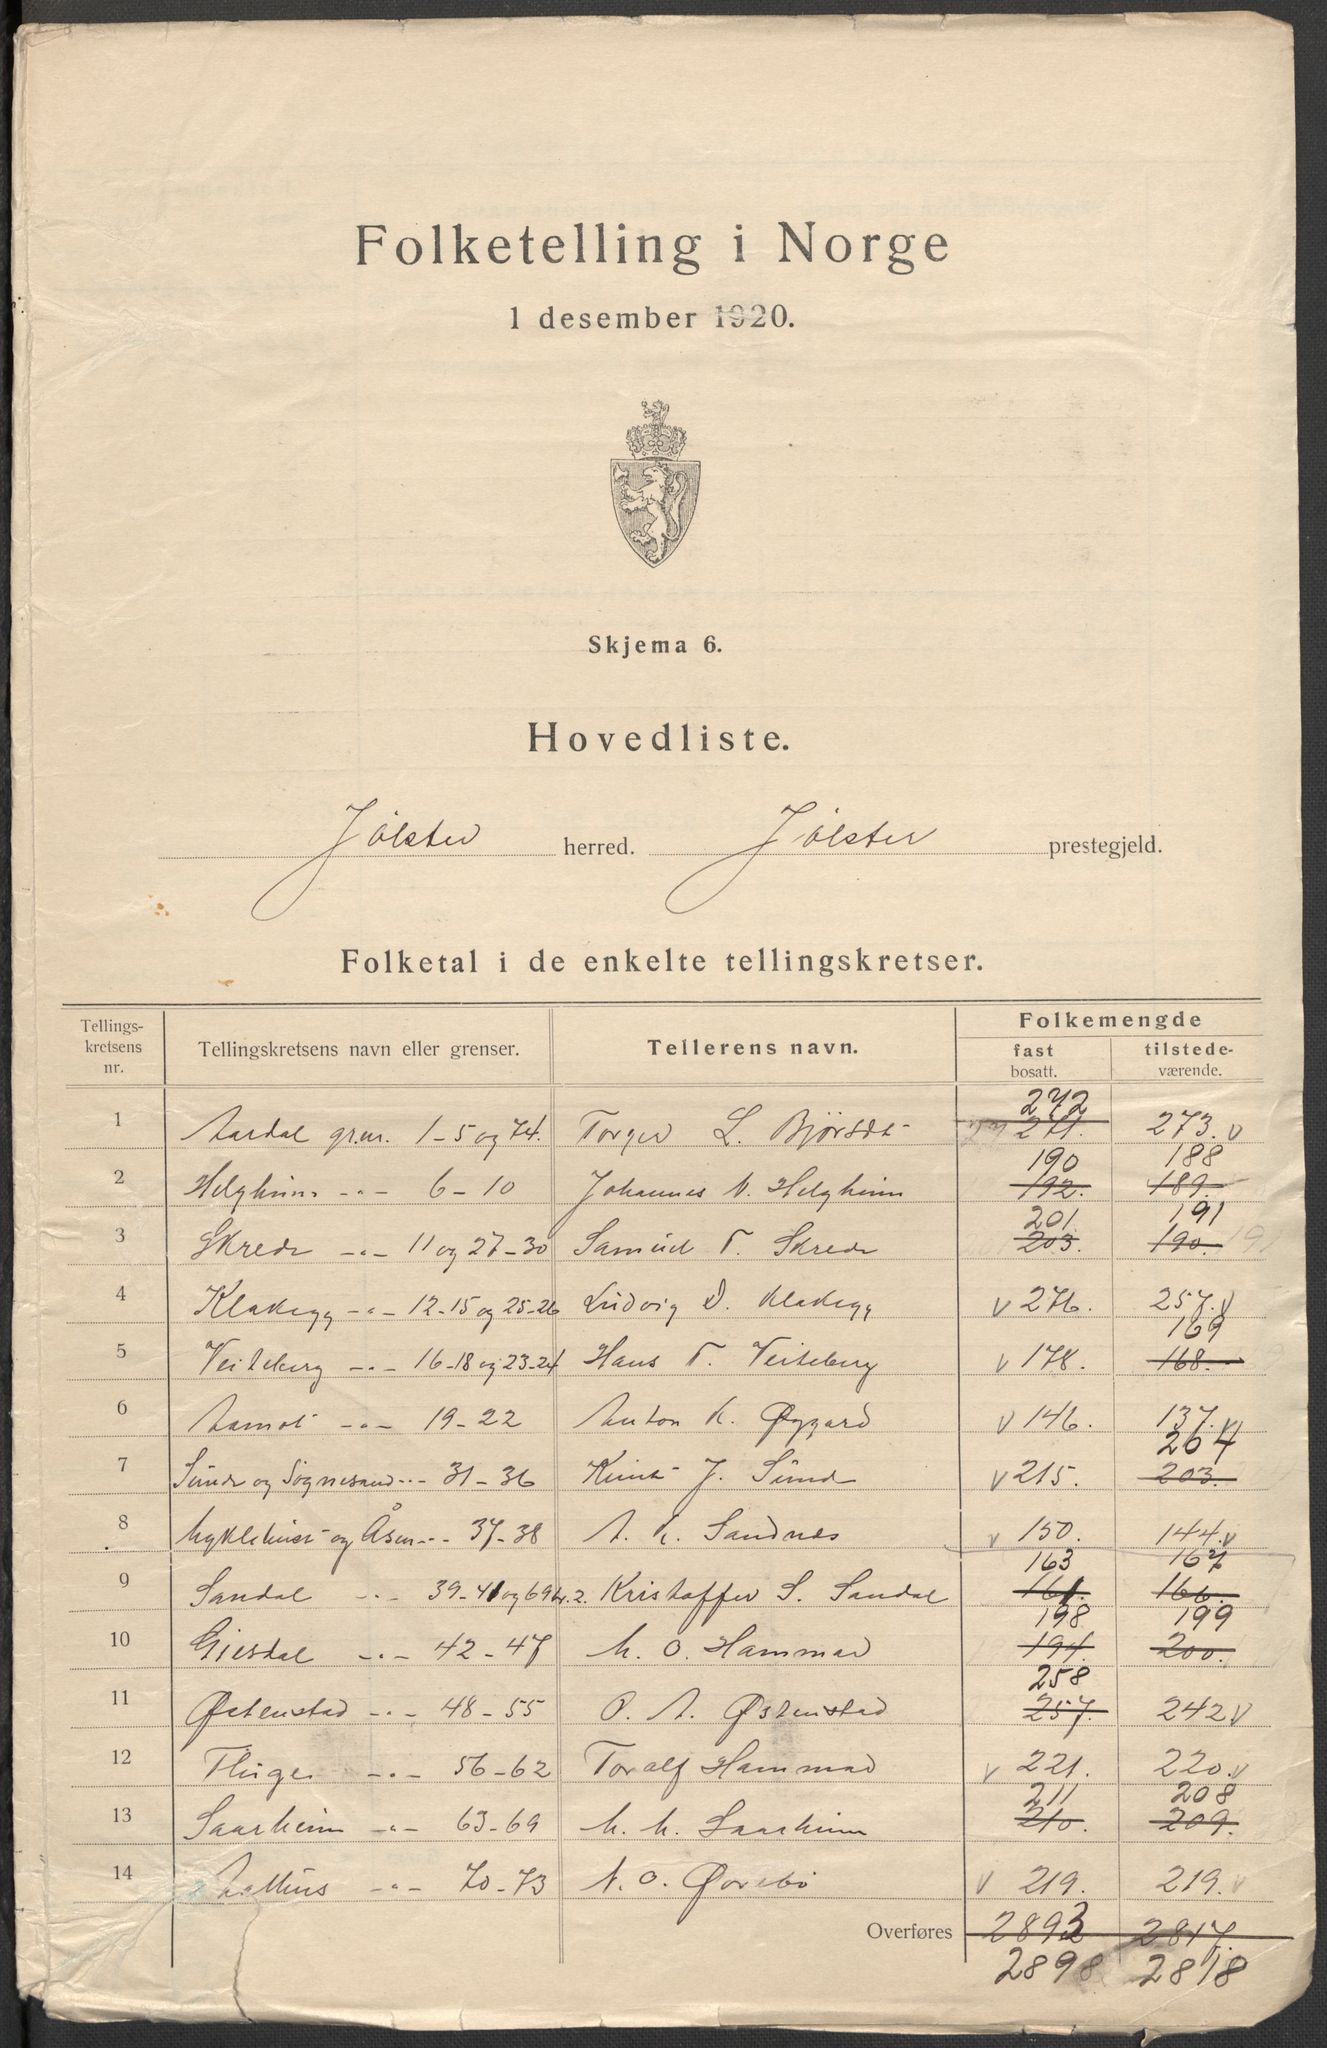 Folketelling i Norge
1 desember 1920.
Skjema 6.
Hovedliste.
Jølster herred. Jølster prestegjeld.
Folketal i de enkelte tellingskretser.
Tellings-kretsens nr. Tellingskretsens navn eller grenser. Tellerens navn. Folkemengde
fast bosatt. tilstede-værende.
272
1 Aardal gr.nr. 1-5 og 74. Torger L. 271. 273. v
190 188
2 Helgheim -"- 6-10 Johannes N. Helgheim 192. 189.
201 191
3 Skrede -"- 11 og 27-30 Samuel T. Skrede 203. 190. 191
4 Klakegg -"- 12-15 og 25-26 Ludvig D. Klakegg v 276. 257. v
169
5 Veiteberg -"- 16-18 og 23-24 Hans T. Veiteberg v 178. 168.
6 Aamot -"- 19-22 Anton K. Øygard v 146. 137. v
204
7 Sunde og Søgnesand -"- 31-36 Knut J. Sunde v 215. 203.
8 Myklebust og Åsen -"- 37-38 A. K. Sandnes v 150. 144. v
163 167
9 Sandal -"- 39-41 og 69 br. 2. Kristoffer S. Sandal 161 166.
198 199
10 Gjesdal -"- 42-47 M. O. Hammar 194. 200.
258
11 Østenstad -"- 48-55 O. A. Østenstad 257. 242 v
12 Fluge -"- 56-62 Toralf Hammar v 221. 220. v
211 208
13 Saarheim -"- 63-69 M. M. Saarheim 210. 209.
14 Aalhus -"- 70-73 N. O. Ørebø v 219. 219. v
Overføres 2893 2817.
2898 2818